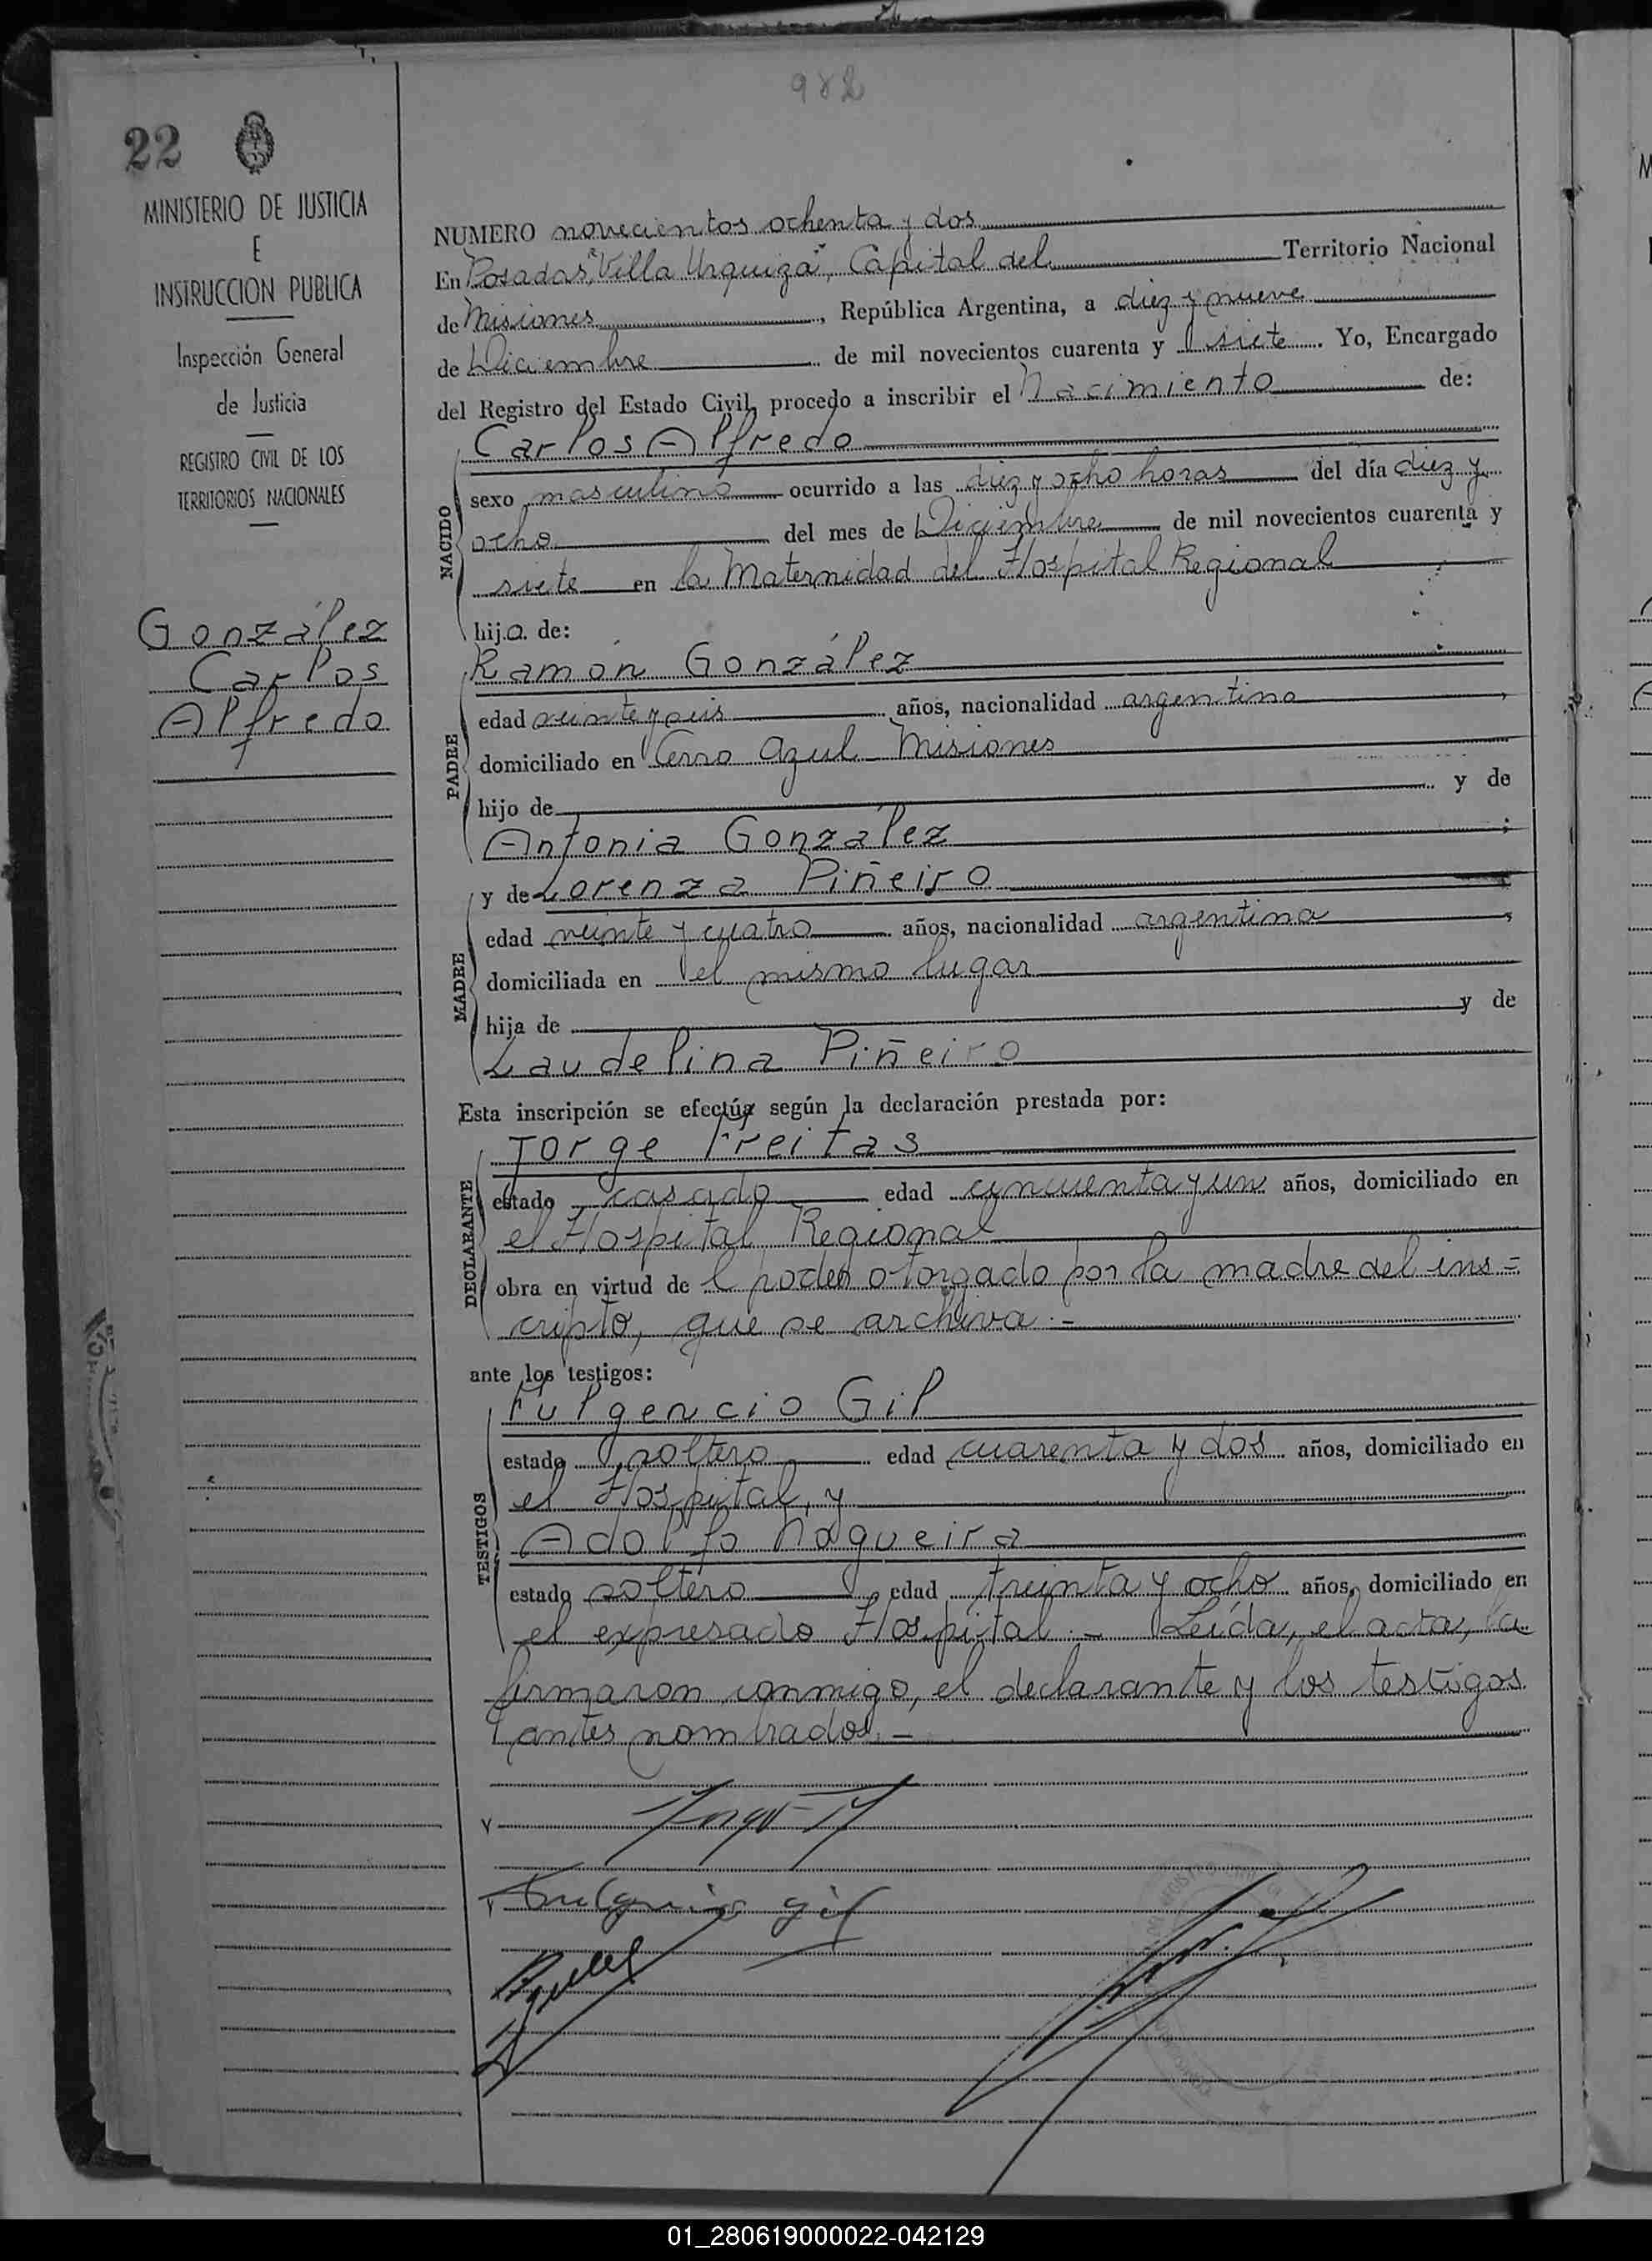 982
22
MINISTERIO DE JUSTICIA
E
INSTRUCCION PUBLICA
Inspección General
de Justicia
REGISTRO CIVIL DE LOS
TERRITORIOS NACIONALES
González
Carlos
Alfredo
NUMERO novecientos ochenta y dos
En Posadas, "Villa Urquiza", Capital del Territorio Nacional
de Misiones, República Argentina, a diez y nueve
de Diciembre de mil novecientos cuarenta y siete. Yo, Encargado
del Registro del Estado Civil, procedo a inscribir el Nacimiento de:
NACIDO
Carlos Alfredo
sexo masculino ocurrido a las diez y ocho horas del día diez y
ocho del mes de Diciembre de mil novecientos cuarenta y
siete en la Maternidad del Hospital Regional
hijo de:
PADRE
Ramón González
edad veinte y seis años, nacionalidad argentina,
domiciliado en Cerro Azul Misiones
hijo de y de
Antonia González;
MADRE
y de Lorenza Piñeiro
edad veinte y cuatro años, nacionalidad argentina,
domiciliada en el mismo lugar
hija de y de
Laudelina Piñeiro
Esta inscripción se efectúa según la declaración prestada por:
DECLARANTE
Jorge Freitas
estado casado edad cincuenta y un años, domiciliado en
el Hospital Regional
obra en virtud del poder otorgado por la madre del ins=
cripto, que se archiva.-
ante los testigos:
TESTIGOS
Fulgencio Gil
estado soltero edad cuarenta y dos años, domiciliado en
el Hospital, y
Adolfo Nagueira
estado soltero, edad treinta y ocho años, domiciliado en
el expresado Hospital.- Leída, el acta, la
firmaron conmigo, el declarante y los testigos
antes nombrados.-
Fulgencio gil
01_280619000022-042129